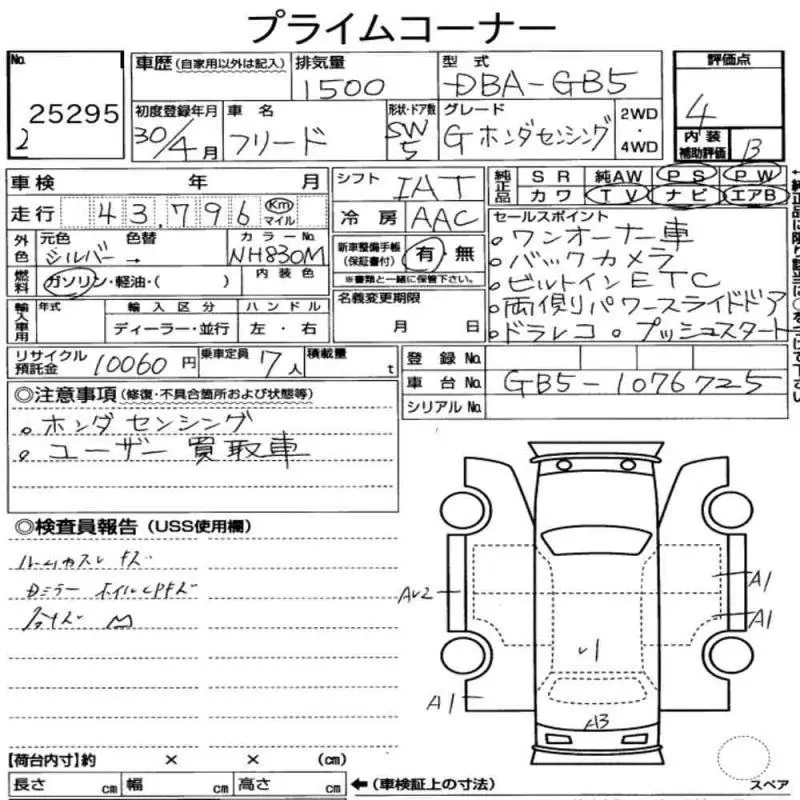 プライムコーナー
No. 25295
2
車歴 (自家用以外は記入)
排気量 1500
型式 DBA-GB5
評価点 4
初度登録年月 30/4月
車名 フリード
形状・ドア数 SW 5
グレード Gホンダセンシング
2WD・4WD
内装補助評価 B
車検 年 月
シフト IAT
純正品 SR 純AW PS PW
カワ TV ナビ エアB
走行 43,796 Km マイル
冷房 AAC
セールスポイント
外色 元色 シルバー → 色替 カラーNo. NH830M
新車整備手帳 (保証書付) 有・無
※書類と一緒に保管下さい。
。ワンオーナー車
。バックカメラ
燃料 ガソリン・軽油・( ) 内装色
名義変更期限 月 日
。ビルトインETC
。両側パワースライドドア
輸入車用 年式 輸入区分 ハンドル
ディーラー・並行 左・右
。ドラレコ 。プッシュスタート
リサイクル預託金 10060円 乗車定員 7人 積載量 t
登録No.
車台No. GB5-1076725
シリアルNo.
◎注意事項 (修復・不具合箇所および状態等)
。ホンダセンシング
。ユーザー買取車
◎検査員報告 (USS使用欄)
Dミラー ホイルCPキズ
A1
AU2
A1
A1
A3
【荷台内寸】約 × × (cm)
長さ cm 幅 cm 高さ cm
← (車検証上の寸法)
スペア